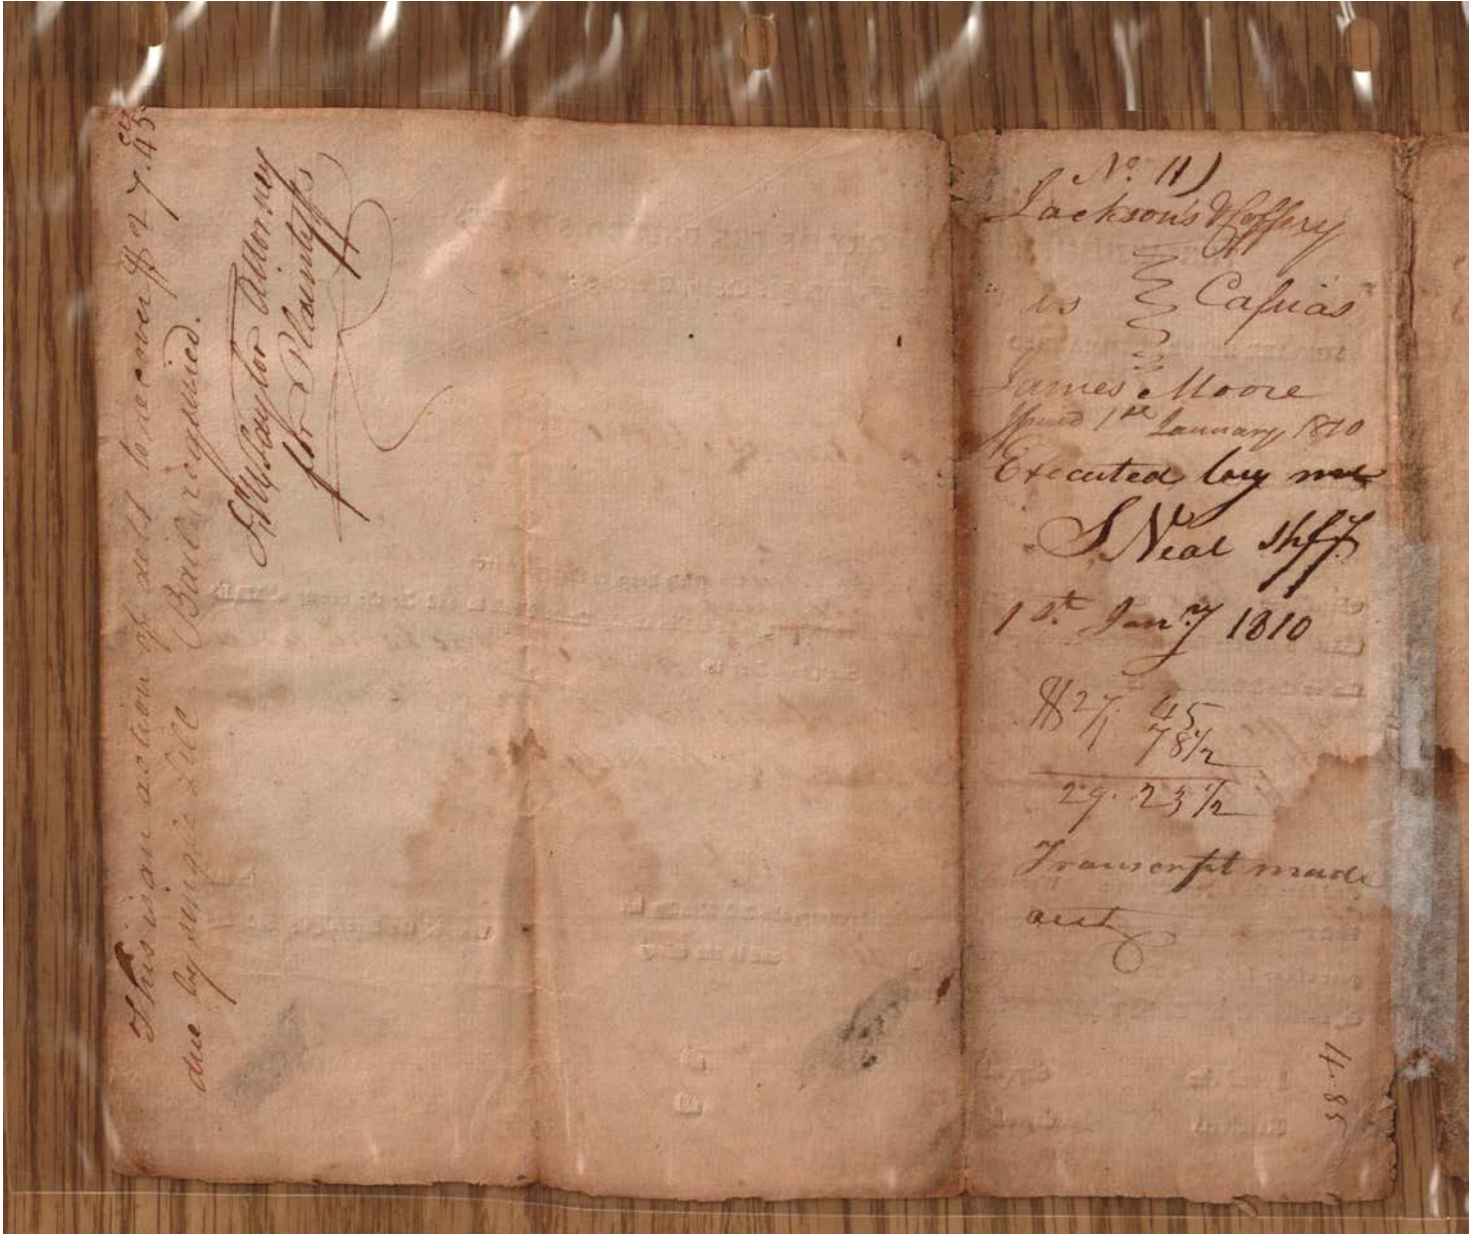 This is an action of debt to recover $27.45 cts
due by single bill. Bail required.
Taylor Attorney
for Plaintiffs
No. 11)
Jacksons & Caffery
vs Capias
James Moore
Issued 1st January 1810
Executed by me
S Neal Shff.
1st. Jany 1810
$27. 45
1 78 1/2
29. 23 1/2
Transcript made
out
4.85